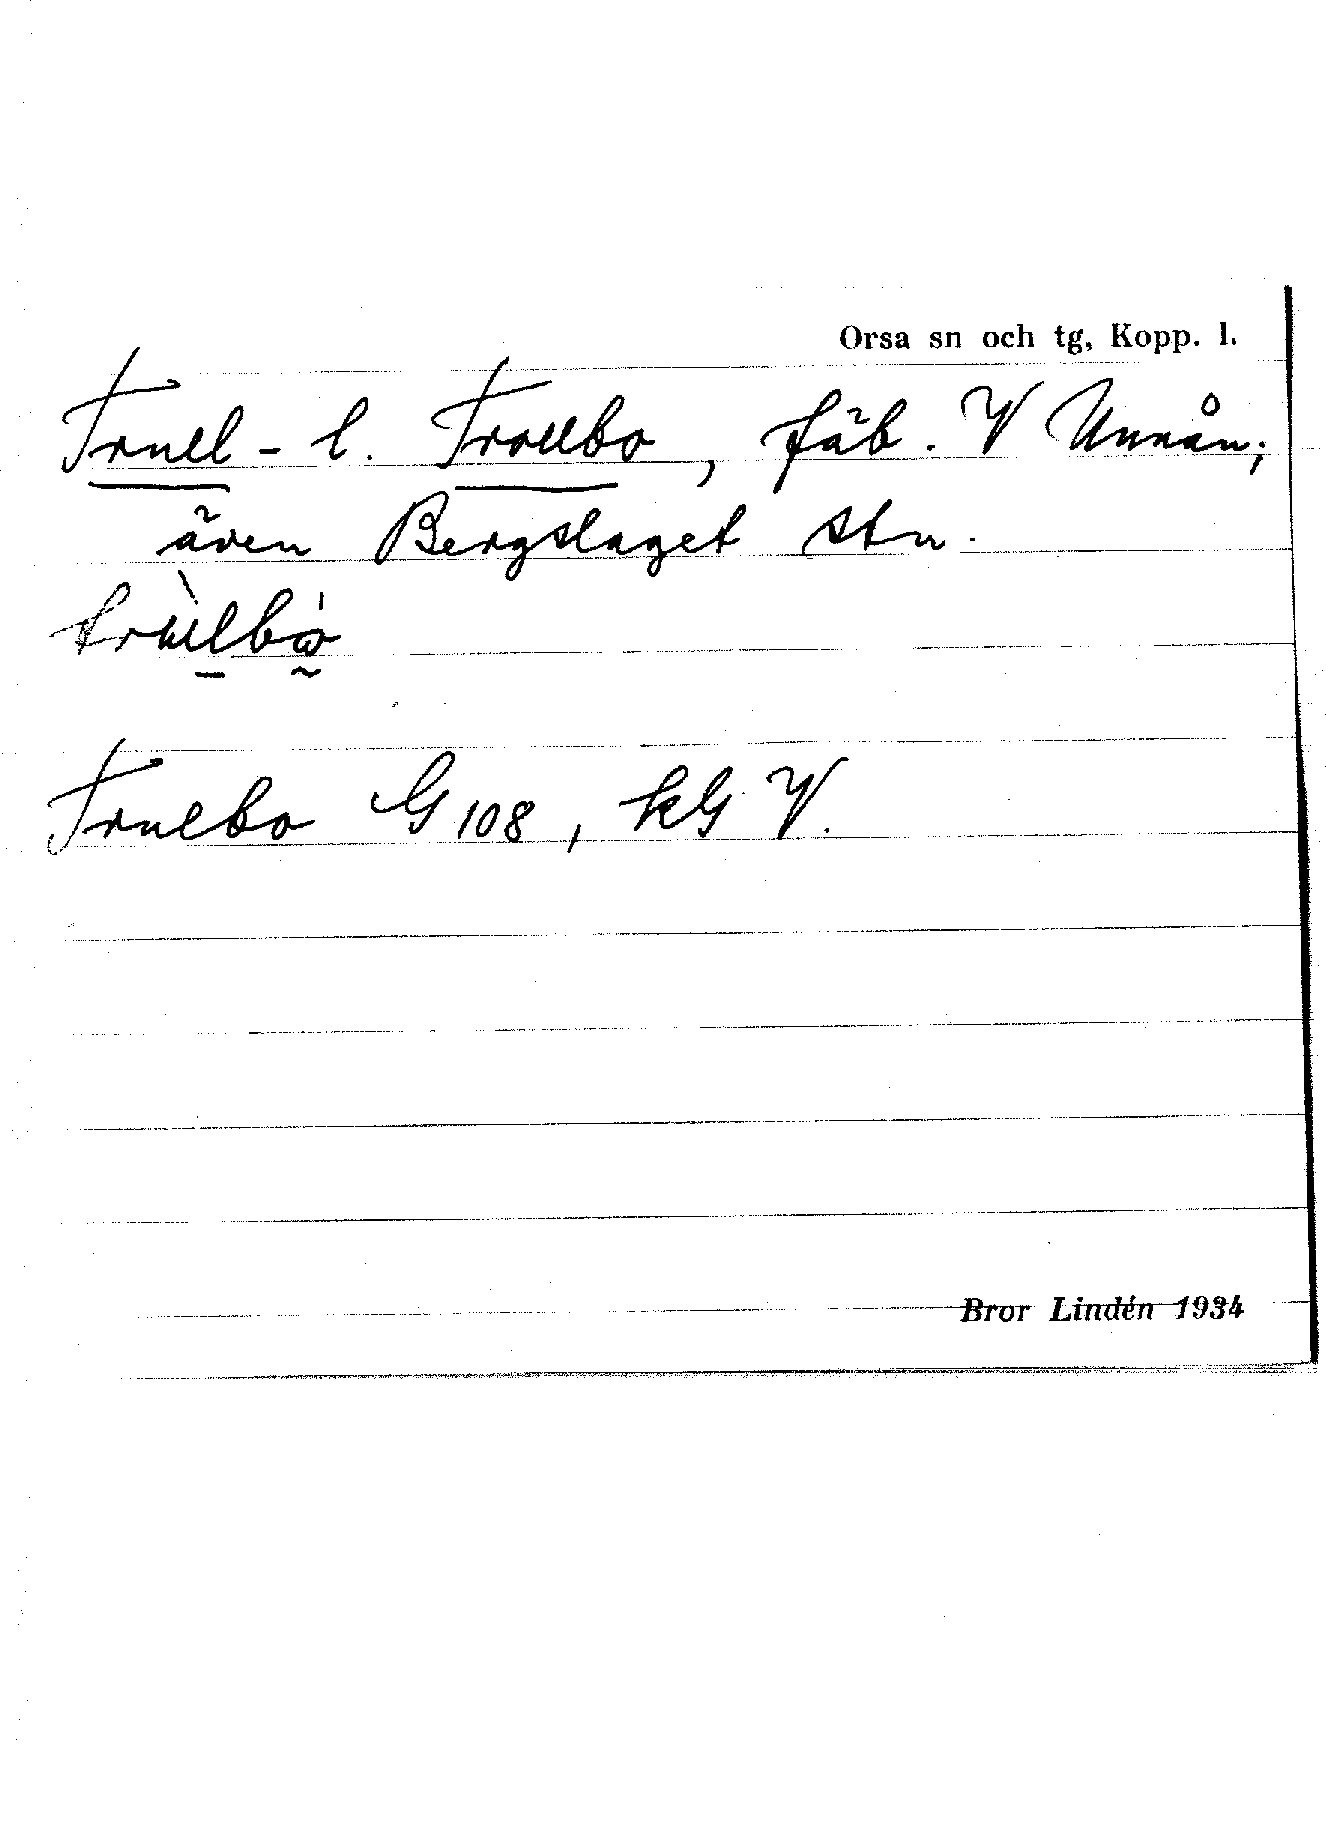 Orsa sn och tg, Kopp. l.
Trull- l. Trollbo, fäb. V Unnån;
även Bergslaget stn.
Trulbo G 108, kG V.
Bror Lindén 1934